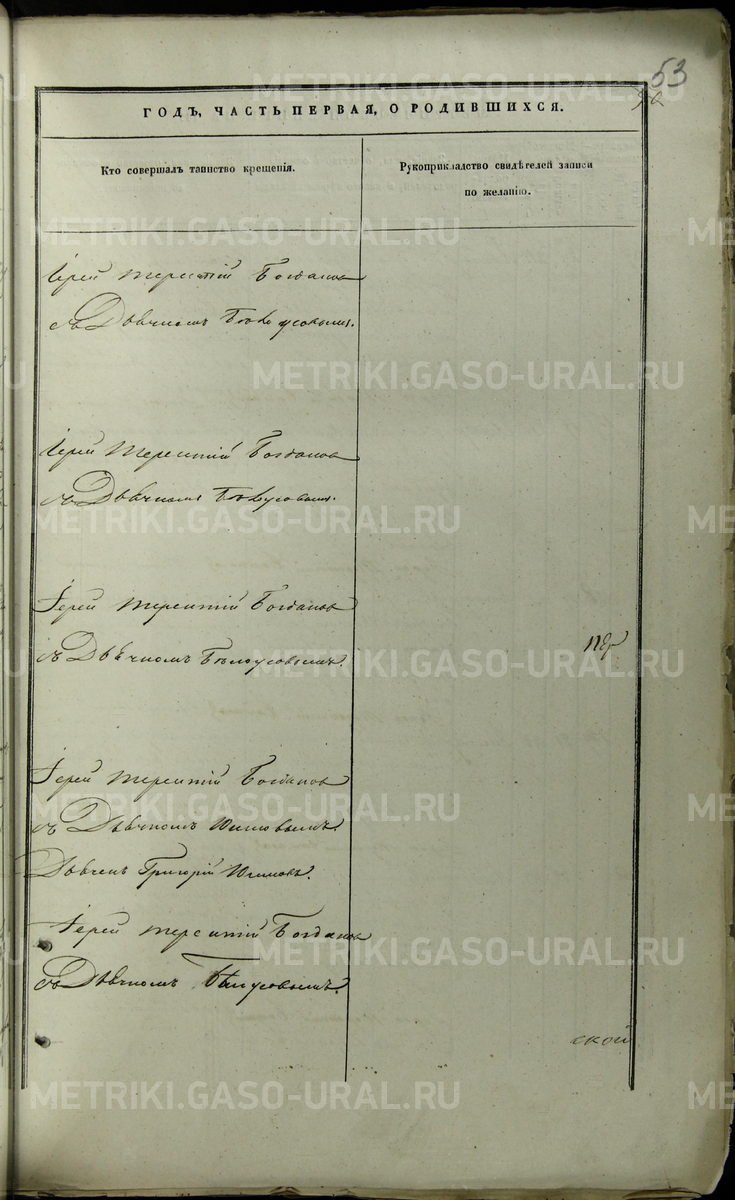 53
ГОДЪ, ЧАСТЬ ПЕРВАЯ, О РОДИВШИХСЯ.
Кто совершалъ таинство крещенія.
Рукоприкладство свидѣтелей записи
по желанію.
Іерей Терентій Богданов
съ Дьячкомъ Бѣлоусовымъ.
Іерей Терентій Богданов
съ Дьячкомъ Бѣлоусовымъ.
Іерей Терентій Богданов
съ Дьячкомъ Бѣлоусовымъ.
Іерей Терентій Богданов
съ Дьячкомъ
Дьячекъ Григорій
Іерей Терентій Богданов
съ Дьячкомъ Бѣлоусовымъ.
ской
METRIKI.GASO-URAL.RU